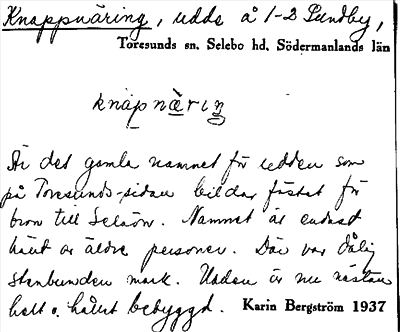 Knappnäring, udde å 1-2 Sundby,
Toresunds sn. Selebo hd. Södermanlands län
knapnæriŋ
Är det gamla namnet för udden som
på Toresunds-sidan bildar fästet för
bron till Selaön. Namnet är endast
känt av äldre personer. Där var dålig
stenbunden mark. Udden är nu nästan
helt o. hållet bebyggd. Karin Bergström 1937